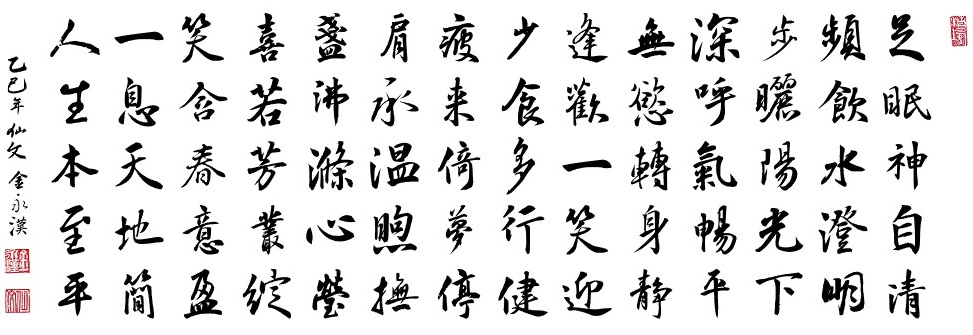 足眠神自清
頻飲水澄明
步曬陽光下
深呼氣暢平
無慾轉身靜
逢歡一笑迎
少食多行健
疲来倚夢停
肩承温煦撫
盞沸滌心瑩
喜若芳叢綻
笑含春意盈
一息天地簡
人生本至平
乙巳年仙文金永漢